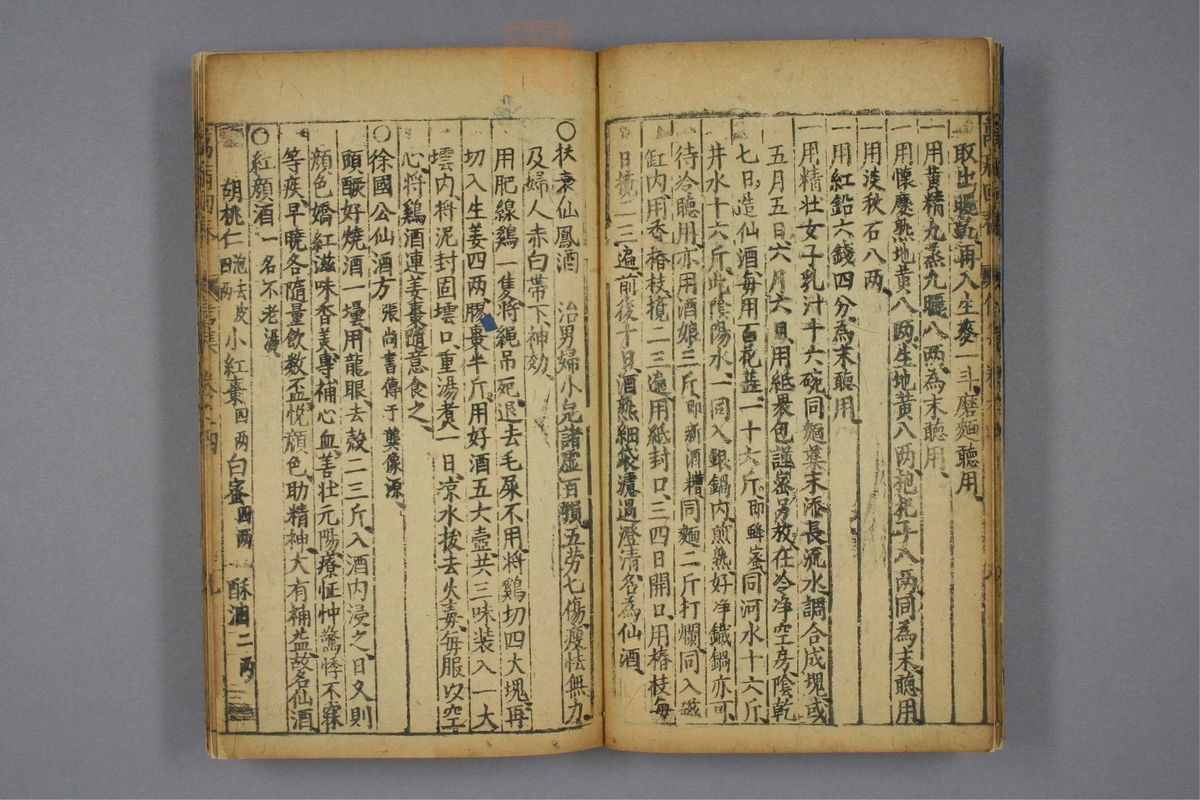 取出曬乾再入生麥一斗磨麵聽用
一用黃精九蒸九曬八兩為末聽用
一用懷慶熟地黃八兩生地黃八兩枸杞子八兩同為末聽用
一用淡秋石八兩
一用紅鉛六錢四分為末聽用
一用精壯女子乳汁十六碗同麵藥末添長流水調合成塊或
五月五日六月六日用紙裹包謹密另放在冷淨空房陰乾
七日造仙酒每用百花蕋一十六斤即蜂蜜同河水十六斤
井水十六斤此陰陽水一同入銀鍋內煎熟好淨鐵鍋亦可
待冷聽用亦用酒娘三斤即新酒糟同麵二斤打爛同入磁
缸內用香椿枝攪二三遍用紙封口三四日開口用椿枝每
日攪二三遍前後十日酒熟細袋濾過澄清名為仙酒
○扶衰仙鳳酒 治男婦小兒諸虛百損五勞七傷瘦怯無力
及婦人赤白帶下神効
用肥線鷄一隻將繩吊死退去毛屎不用將鷄切四大塊再
切入生姜四兩膠棗半斤用好酒五大壺共三味裝入一大
壜內將泥封固壜口重湯煮一日凉水拔去火毒每服以空
心將鷄酒連姜棗隨意食之
○徐國公仙酒方 張尚書傳于龔像源
頭醱好燒酒一壜用龍眼去殼二三斤入酒內浸之日久則
顏色嬌紅滋味香美專補心血善壯元陽療怔忡驚悸不寐
等疾早曉各隨量飲數盃悅顏色助精神大有補益故名仙酒
○紅顏酒 一名不老湯
胡桃仁四兩泡去皮 小紅棗四兩 白蜜四兩 酥油二兩